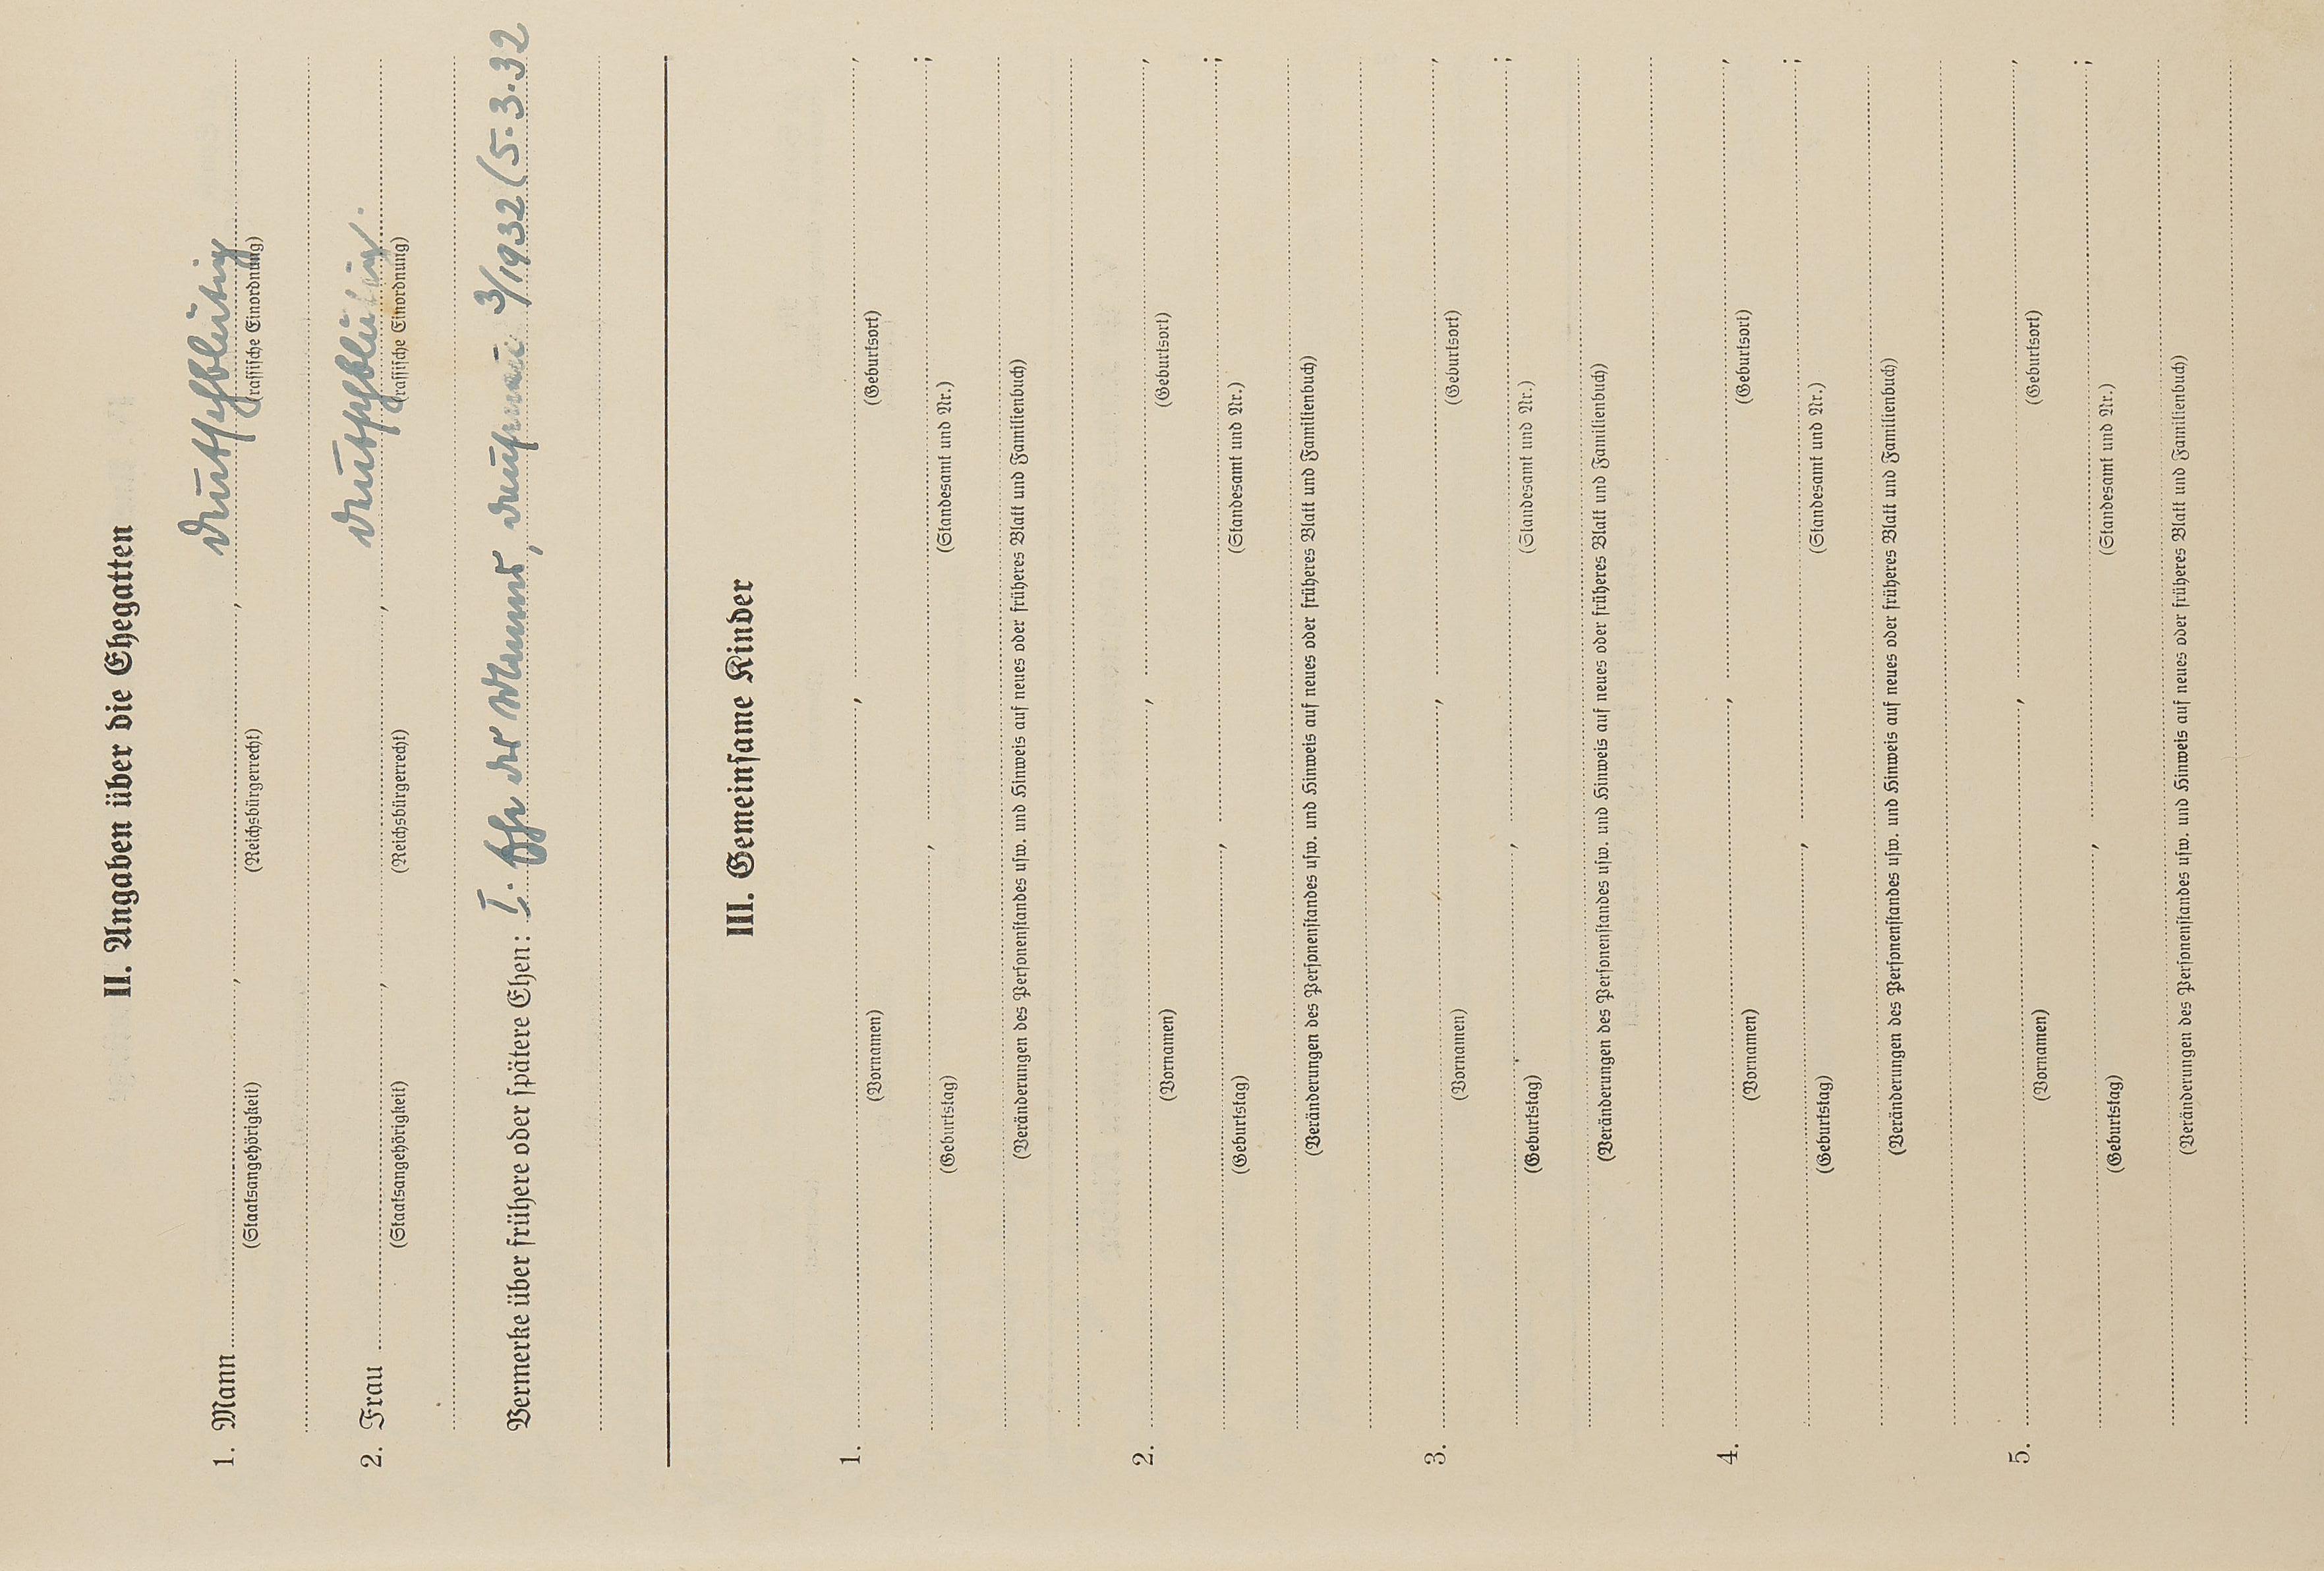 II. Angaben über die Ehegatten
1. Mann , , deutschblütig
(Staatsangehörigkeit) (Reichsbürgerrecht) (rassische Einordnung)
2. Frau , , deutschblütig.
(Staatsangehörigkeit) (Reichsbürgerrecht) (rassische Einordnung)
Vermerke über frühere oder spätere Ehen: I. Ehe des Mannes, 3/1932 (5.3.32
III. Gemeinsame Kinder
1. , ,
(Vornamen) (Geburtsort)
, ;
(Geburtstag) (Standesamt und Nr.)
(Veränderungen des Personenstandes usw. und Hinweis auf neues oder früheres Blatt und Familienbuch)
2. , ,
(Vornamen) (Geburtsort)
, ;
(Geburtstag) (Standesamt und Nr.)
(Veränderungen des Personenstandes usw. und Hinweis auf neues oder früheres Blatt und Familienbuch)
3. , ,
(Vornamen) (Geburtsort)
, ;
(Geburtstag) (Standesamt und Nr.)
(Veränderungen des Personenstandes usw. und Hinweis auf neues oder früheres Blatt und Familienbuch)
4. , ,
(Vornamen) (Geburtsort)
, ;
(Geburtstag) (Standesamt und Nr.)
(Veränderungen des Personenstandes usw. und Hinweis auf neues oder früheres Blatt und Familienbuch)
5. , ,
(Vornamen) (Geburtsort)
, ;
(Geburtstag) (Standesamt und Nr.)
(Veränderungen des Personenstandes usw. und Hinweis auf neues oder früheres Blatt und Familienbuch)